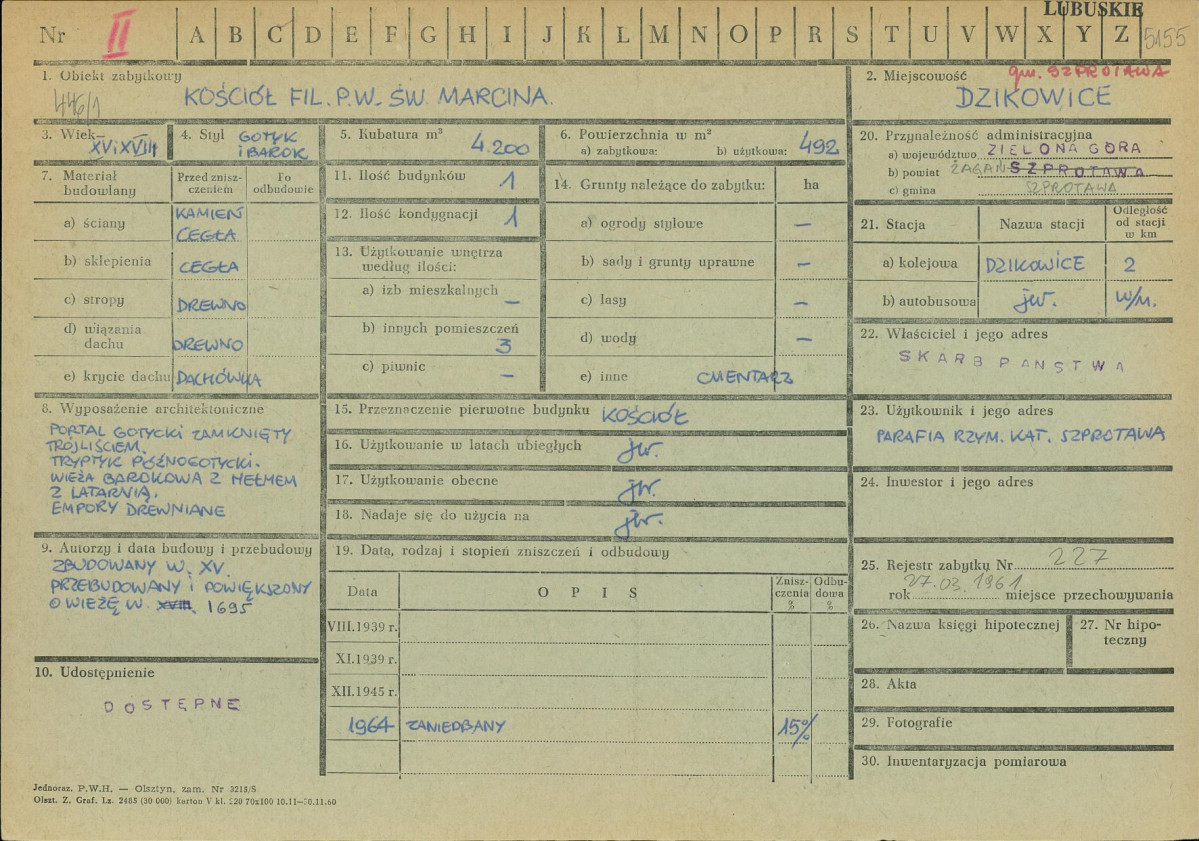 LUBUSKIE
Nr II A B C D E F G H I J K L M N O P R S T U V W X Y Z 5155
1. Obiekt zabytkowy
446/1
KOŚCIÓŁ FIL. P.W. ŚW. MARCINA.
2. Miejscowość gm. SZPROTAWA
DZIKOWICE
3. Wiek XV i XVIII
4. Styl GOTYK
I BAROK
5. Kubatura m³ 4.200
6. Powierzchnia w m²
a) zabytkowa: b) użytkowa: 492
7. Materiał budowlany
Przed znisz-
czeniem
Po
odbudowie
a) ściany KAMIEŃ
CEGŁA
b) sklepienia CEGŁA
c) stropy DREWNO
d) wiązania
dachu DREWNO
e) krycie dachu DACHÓWKA
8. Wyposażenie architektoniczne
PORTAL GOTYCKI ZAMKNIĘTY
TRÓJLIŚCIEM.
TRYPTYK PÓŹNOGOTYCKI.
WIEŻA BAROKOWA Z HEŁMEM
Z LATARNIĄ.
EMPORY DREWNIANE
9. Autorzy i data budowy i przebudowy
ZBUDOWANY W. XV.
PRZEBUDOWANY I POWIĘKSZONY
O WIEŻĘ W. XVIII. 1695
10. Udostępnienie
DOSTĘPNE
11. Ilość budynków 1
12. Ilość kondygnacji 1
13. Użytkowanie wnętrza
według ilości:
a) izb mieszkalnych –
b) innych pomieszczeń
3
c) piwnic –
14. Grunty należące do zabytku: ha
a) ogrody stylowe –
b) sady i grunty uprawne –
c) lasy –
d) wody –
e) inne CMENTARZ
15. Przeznaczenie pierwotne budynku KOŚCIÓŁ
16. Użytkowanie w latach ubiegłych jw.
17. Użytkowanie obecne jw.
18. Nadaje się do użycia na jw.
19. Data, rodzaj i stopień zniszczeń i odbudowy
Data O P I S Znisz-
czenia
% Odbu-
dowa
%
VIII.1939 r.
XI.1939 r.
XII.1945 r.
1964 ZANIEDBANY 15%
20. Przynależność administracyjna
a) województwo ZIELONA GÓRA
b) powiat ŻAGAŃ SZPROTAWA
c) gmina SZPROTAWA
21. Stacja Nazwa stacji Odległość
od stacji
w km
a) kolejowa DZIKOWICE 2
b) autobusowa jw. w/m.
22. Właściciel i jego adres
SKARB PAŃSTWA
23. Użytkownik i jego adres
PARAFIA RZYM. KAT. SZPROTAWA
24. Inwestor i jego adres
25. Rejestr zabytku Nr 227
27.03.1961
rok miejsce przechowywania
26. Nazwa księgi hipotecznej
27. Nr hipo-
teczny
28. Akta
29. Fotografie
30. Inwentaryzacja pomiarowa
Jednoraz. P.W.H. — Olsztyn, zam. Nr 3215/S
Olszt. Z. Graf. Lz. 2485 (30 000) karton V kl. 220 70x100 10.11—30.11.60